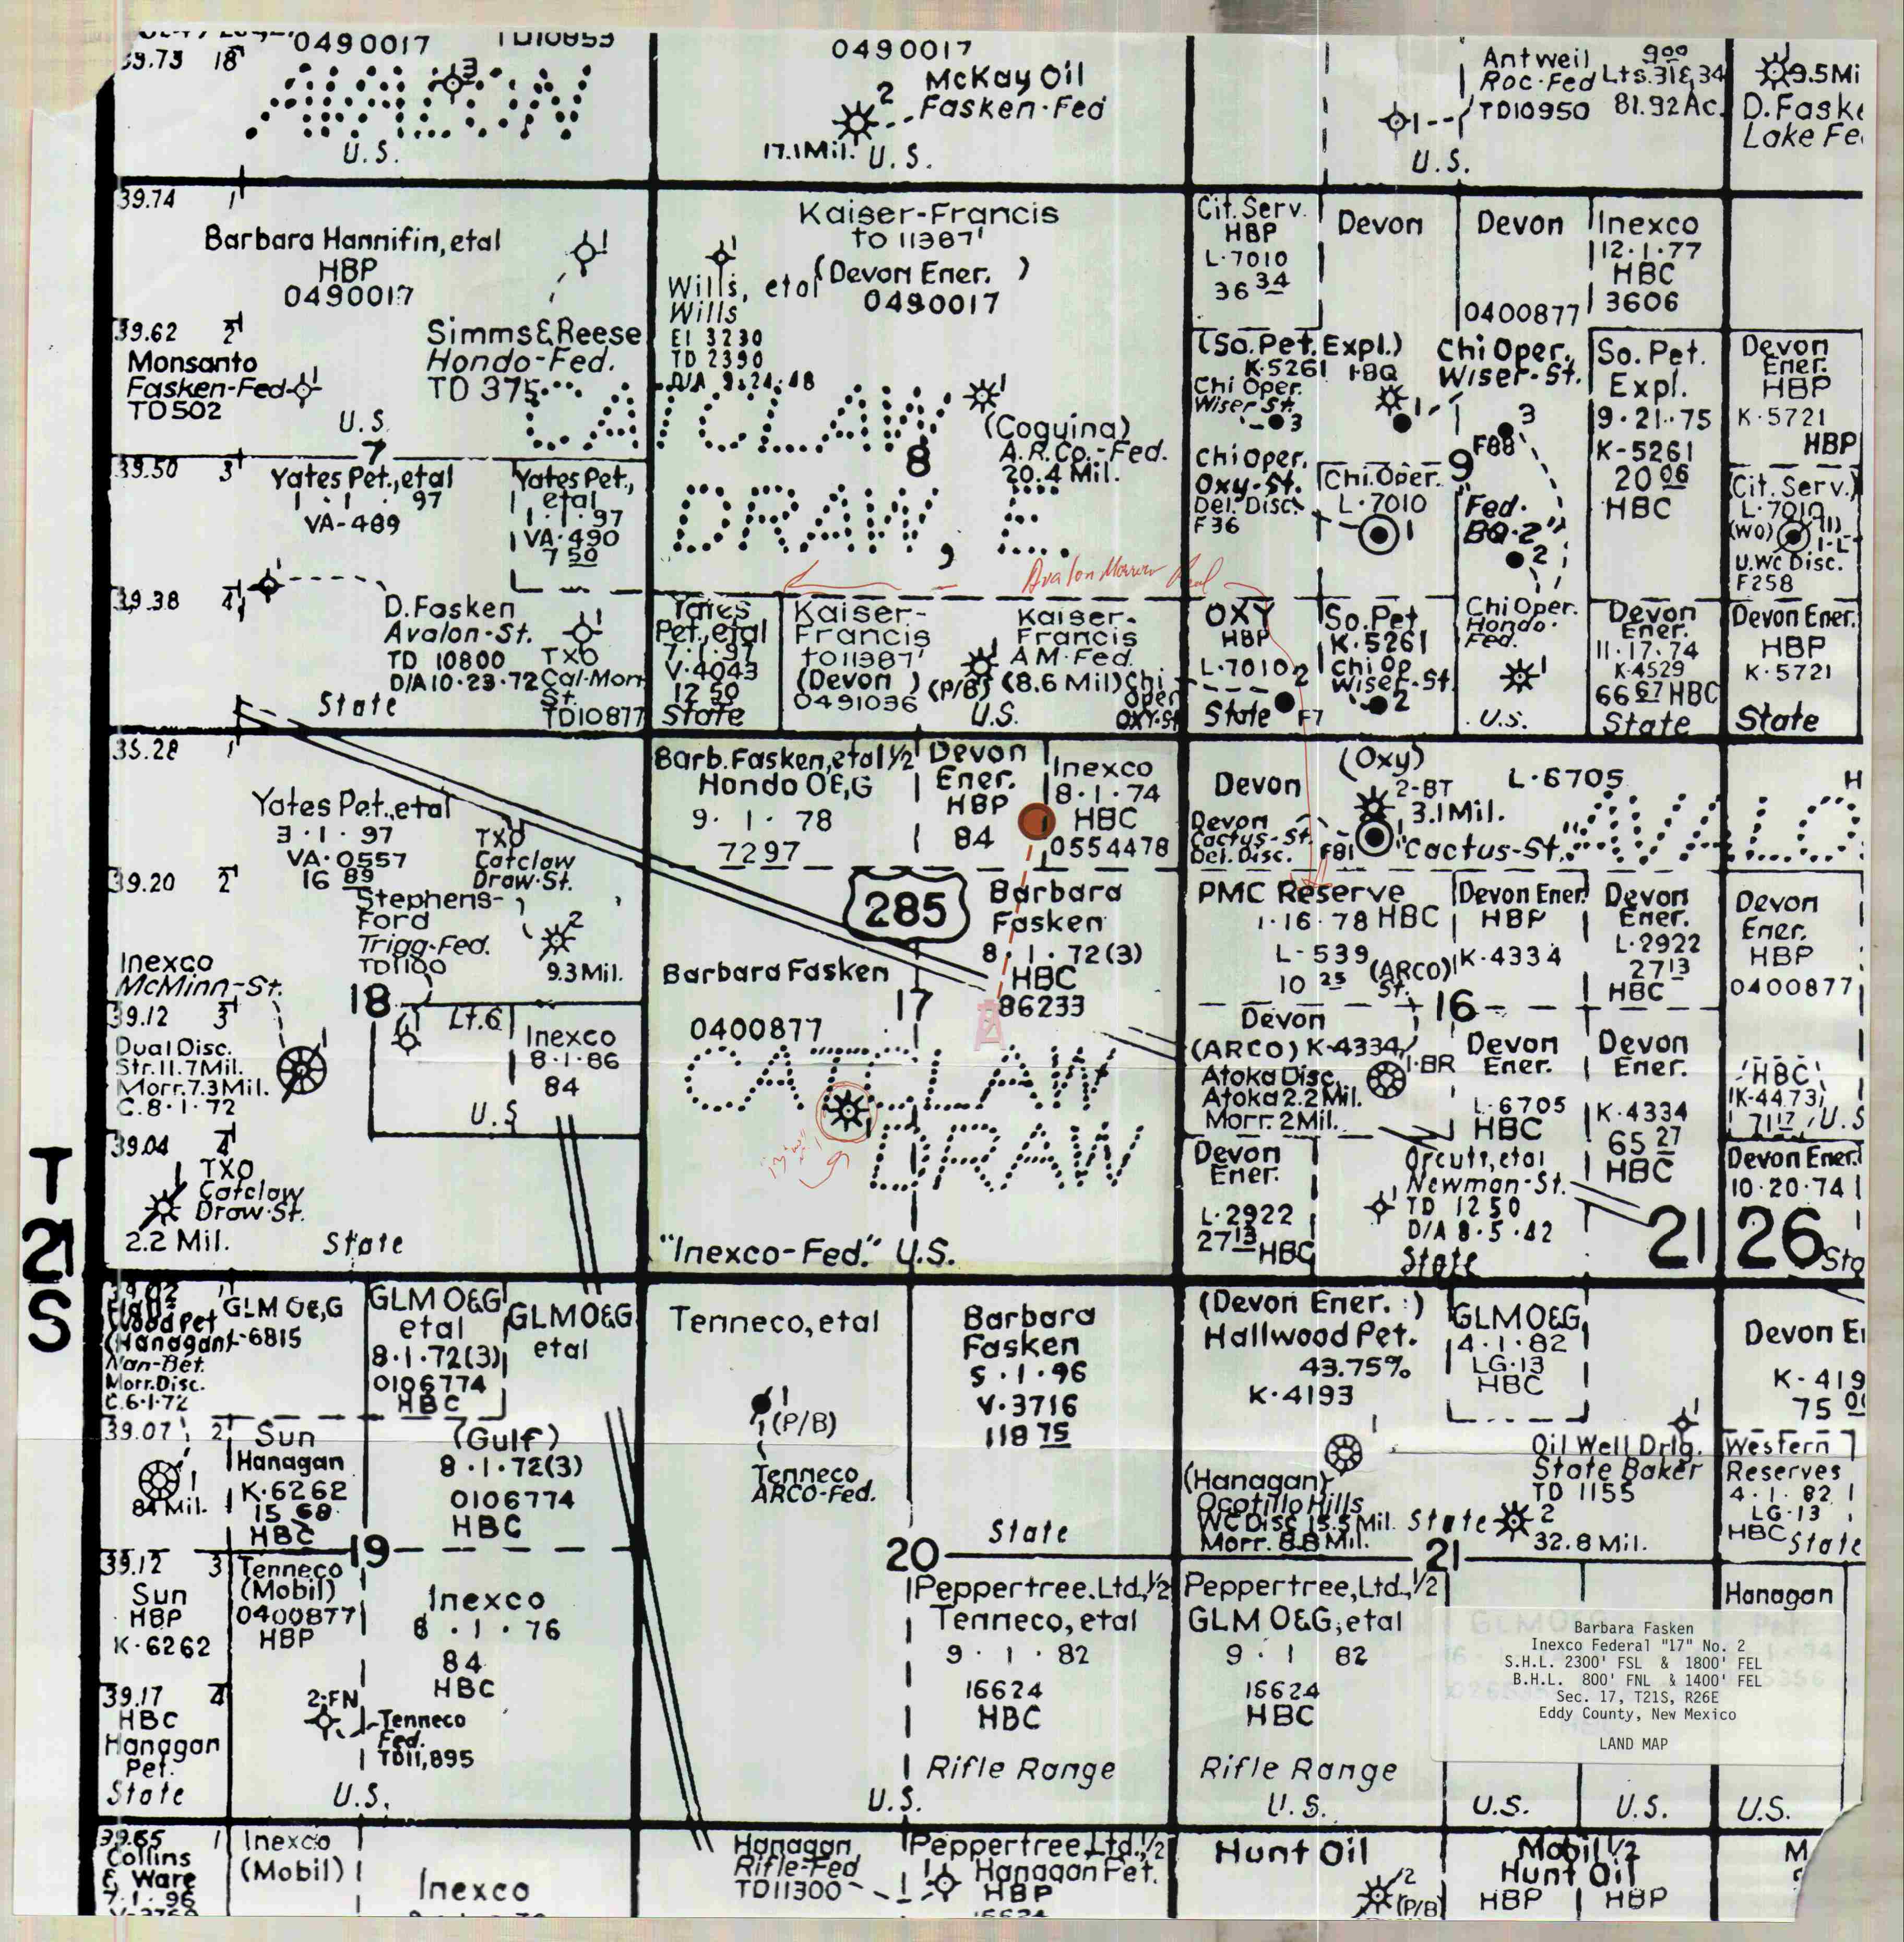 39.73 18
0490017
TD10853
3
U.S.
0490017
McKay Oil
Fasken-Fed
2
17.1Mil.
U.S.
Antweil
Roc-Fed
TD10950
1
9⁰⁰
Lts.31&34
81.92Ac.
U.S.
9.5Mi
D.Faske
Lake Fe
39.74 1
Barbara Hannifin, etal
HBP
0490017
1
39.62 2
Monsanto
Fasken-Fed
TD502
1
Simms&Reese
Hondo-Fed.
TD 375
U.S.
7
Kaiser-Francis
to 11387'
(Devon Ener. )
0490017
1
Wills, etal
Wills
El 3230
TD 2390
D/A 9.24.48
CATCLAW
DRAW, E.
8
1
(Coquina)
A.R.Co.-Fed.
20.4 Mil.
Cit. Serv.
HBP
L-7010
36 34
Devon
Devon
0400877
Inexco
12·1·77
HBC
3606
(So. Pet. Expl.)
K-5261
Chi Oper.
Wiser St.
3
Chi Oper.
Wiser-St.
1
3
F88
9
So. Pet.
Expl.
9·21·75
K-5261
20 06
HBC
Devon
Ener.
HBP
K-5721
HBP
39.50 3
Yates Pet., etal
1 · 1 · 97
VA-489
Yates Pet.,
etal
1·1·97
VA-490
7 50
Chi Oper.
Oxy-St.
Del. Disc.
F36
Chi Oper.
L-7010
1
Fed.
BQ-2"
2
(Cit. Serv.)
L-7010
(WO)
1-L
U.WC Disc.
F258
Avalon Morrow
39.38 4
D. Fasken
Avalon-St.
TD 10800
D/A10·23·72
1
TXO
Cal-Mon
St.
TD10877
State
Yates
Pet., etal
7·1·97
V-4043
12 50
State
Kaiser-
Francis
to11387'
(Devon )
0491036
Kaiser-
Francis
AM-Fed.
(P/B) (8.6 Mil)
U.S.
Chi
Oper
OXY-St
OXY
HBP
L-7010
2
State F7
So. Pet
K-5261
Chi Op
Wiser-St.
2
Chi Oper.
Hondo-
Fed.
1
U.S.
Devon
Ener.
11·17·74
K-4529
66 67 HBC
State
Devon Ener.
HBP
K-5721
State
35.28 1
Yates Pet., etal
3·1·97
VA-0557
16 89
TXO
Catclaw
Draw-St.
39.20 2
Stephens-
Ford
Trigg-Fed.
TD1100
2
9.3 Mil.
Inexco
McMinn-St.
39.12 3
18
1
Dual Disc.
Str. 11.7Mil.
Morr. 7.3Mil.
C.8·1·72
Lt.6
Inexco
8·1·86
84
U.S
39.04 4
1 TXO
Catclaw
Draw-St.
2.2 Mil.
State
Barb. Fasken, etal ½
Hondo O&G
9· 1 · 78
7297
Devon
Ener.
HBP
84
1
Inexco
8·1·74
HBC
0554478
285
Barbara
Fasken
8·1·72(3)
HBC
86233
Barbara Fasken
17
0400877
CATCLAW
DRAW
"Inexco-Fed." U.S.
Devon
Devon
Cactus-St.
Del. Disc. F81
(Oxy)
2-BT
3.1Mil.
1
Cactus-St.
L-6705
AVALO
H
PMC Reserve
1·16·78 HBC
L-539
10 25
(ARCO)
St.
Devon Ener.
HBP
K-4334
Devon
Ener.
L-2922
27 13
HBC
Devon
Ener.
HBP
0400877
16
Devon
(ARCO) K-4334
Atoka Disc.
Atoka 2.2 Mil.
Morr. 2Mil.
1-BR
Devon
Ener.
L-6705
HBC
Devon
Ener.
K-4334
65 27
HBC
HBC
K-4473
71 17 U.S
Devon
Ener.
L-2922
27 13 HBC
Orcutt, etal
Newman-St.
1
TD 1250
D/A 8·5·42
State
Devon Ener.
10·20·74
T
21
S
21 26
39.02 1
Wood Pet
(Hanagan)
Morr. Disc.
C.6·1·72
GLM O&G
6815
GLM O&G
etal
8·1·72(3)
0106774
HBC
GLM O&G
etal
39.07 2
1
84 Mil.
Sun
Hanagan
K-6262
15 68
HBC
(Gulf)
8·1·72(3)
0106774
HBC
19
Tenneco, etal
1
(P/B)
Tenneco
ARCO-Fed.
Barbara
Fasken
5·1·96
V-3716
118 75
State
20
(Devon Ener. )
Hallwood Pet.
43.75%
K-4193
GLM O&G
4·1·82
LG-13
HBC
Devon E
K-419
75
1
(Hanagan)
Ocotillo Hills
WC Disc 15.5 Mil.
Morr. 8.8 Mil.
State
1
Oil Well Drlg.
State Baker
TD 1155
2
32.8 Mil.
21
Western
Reserves
4·1·82
LG-13
HBC
State
39.12 3
Sun
HBP
K-6262
Tenneco
(Mobil)
0400877
HBP
Inexco
6·1·76
84
HBC
39.17 4
HBC
Hanagan
Pet.
State
2-FN
Tenneco
Fed.
TD11,895
U.S.
Peppertree, Ltd., ½
Tenneco, etal
9· 1 · 82
16624
HBC
Rifle Range
U.S.
Peppertree, Ltd., ½
GLM O&G, etal
9· 1 82
16624
HBC
Rifle Range
U.S.
Hanagan
Barbara Fasken
Inexco Federal "17" No. 2
S.H.L. 2300' FSL & 1800' FEL
B.H.L. 800' FNL & 1400' FEL
Sec. 17, T21S, R26E
Eddy County, New Mexico
LAND MAP
U.S.
U.S.
U.S.
39.65 1
Collins
& Ware
7·1·96
Inexco
(Mobil)
Inexco
Hanagan
Rifle-Fed
TD11300
Peppertree, Ltd., ½
Hanagan Pet.
HBP
Hunt Oil
2
(P/B)
Mobil ½
Hunt Oil
HBP
HBP